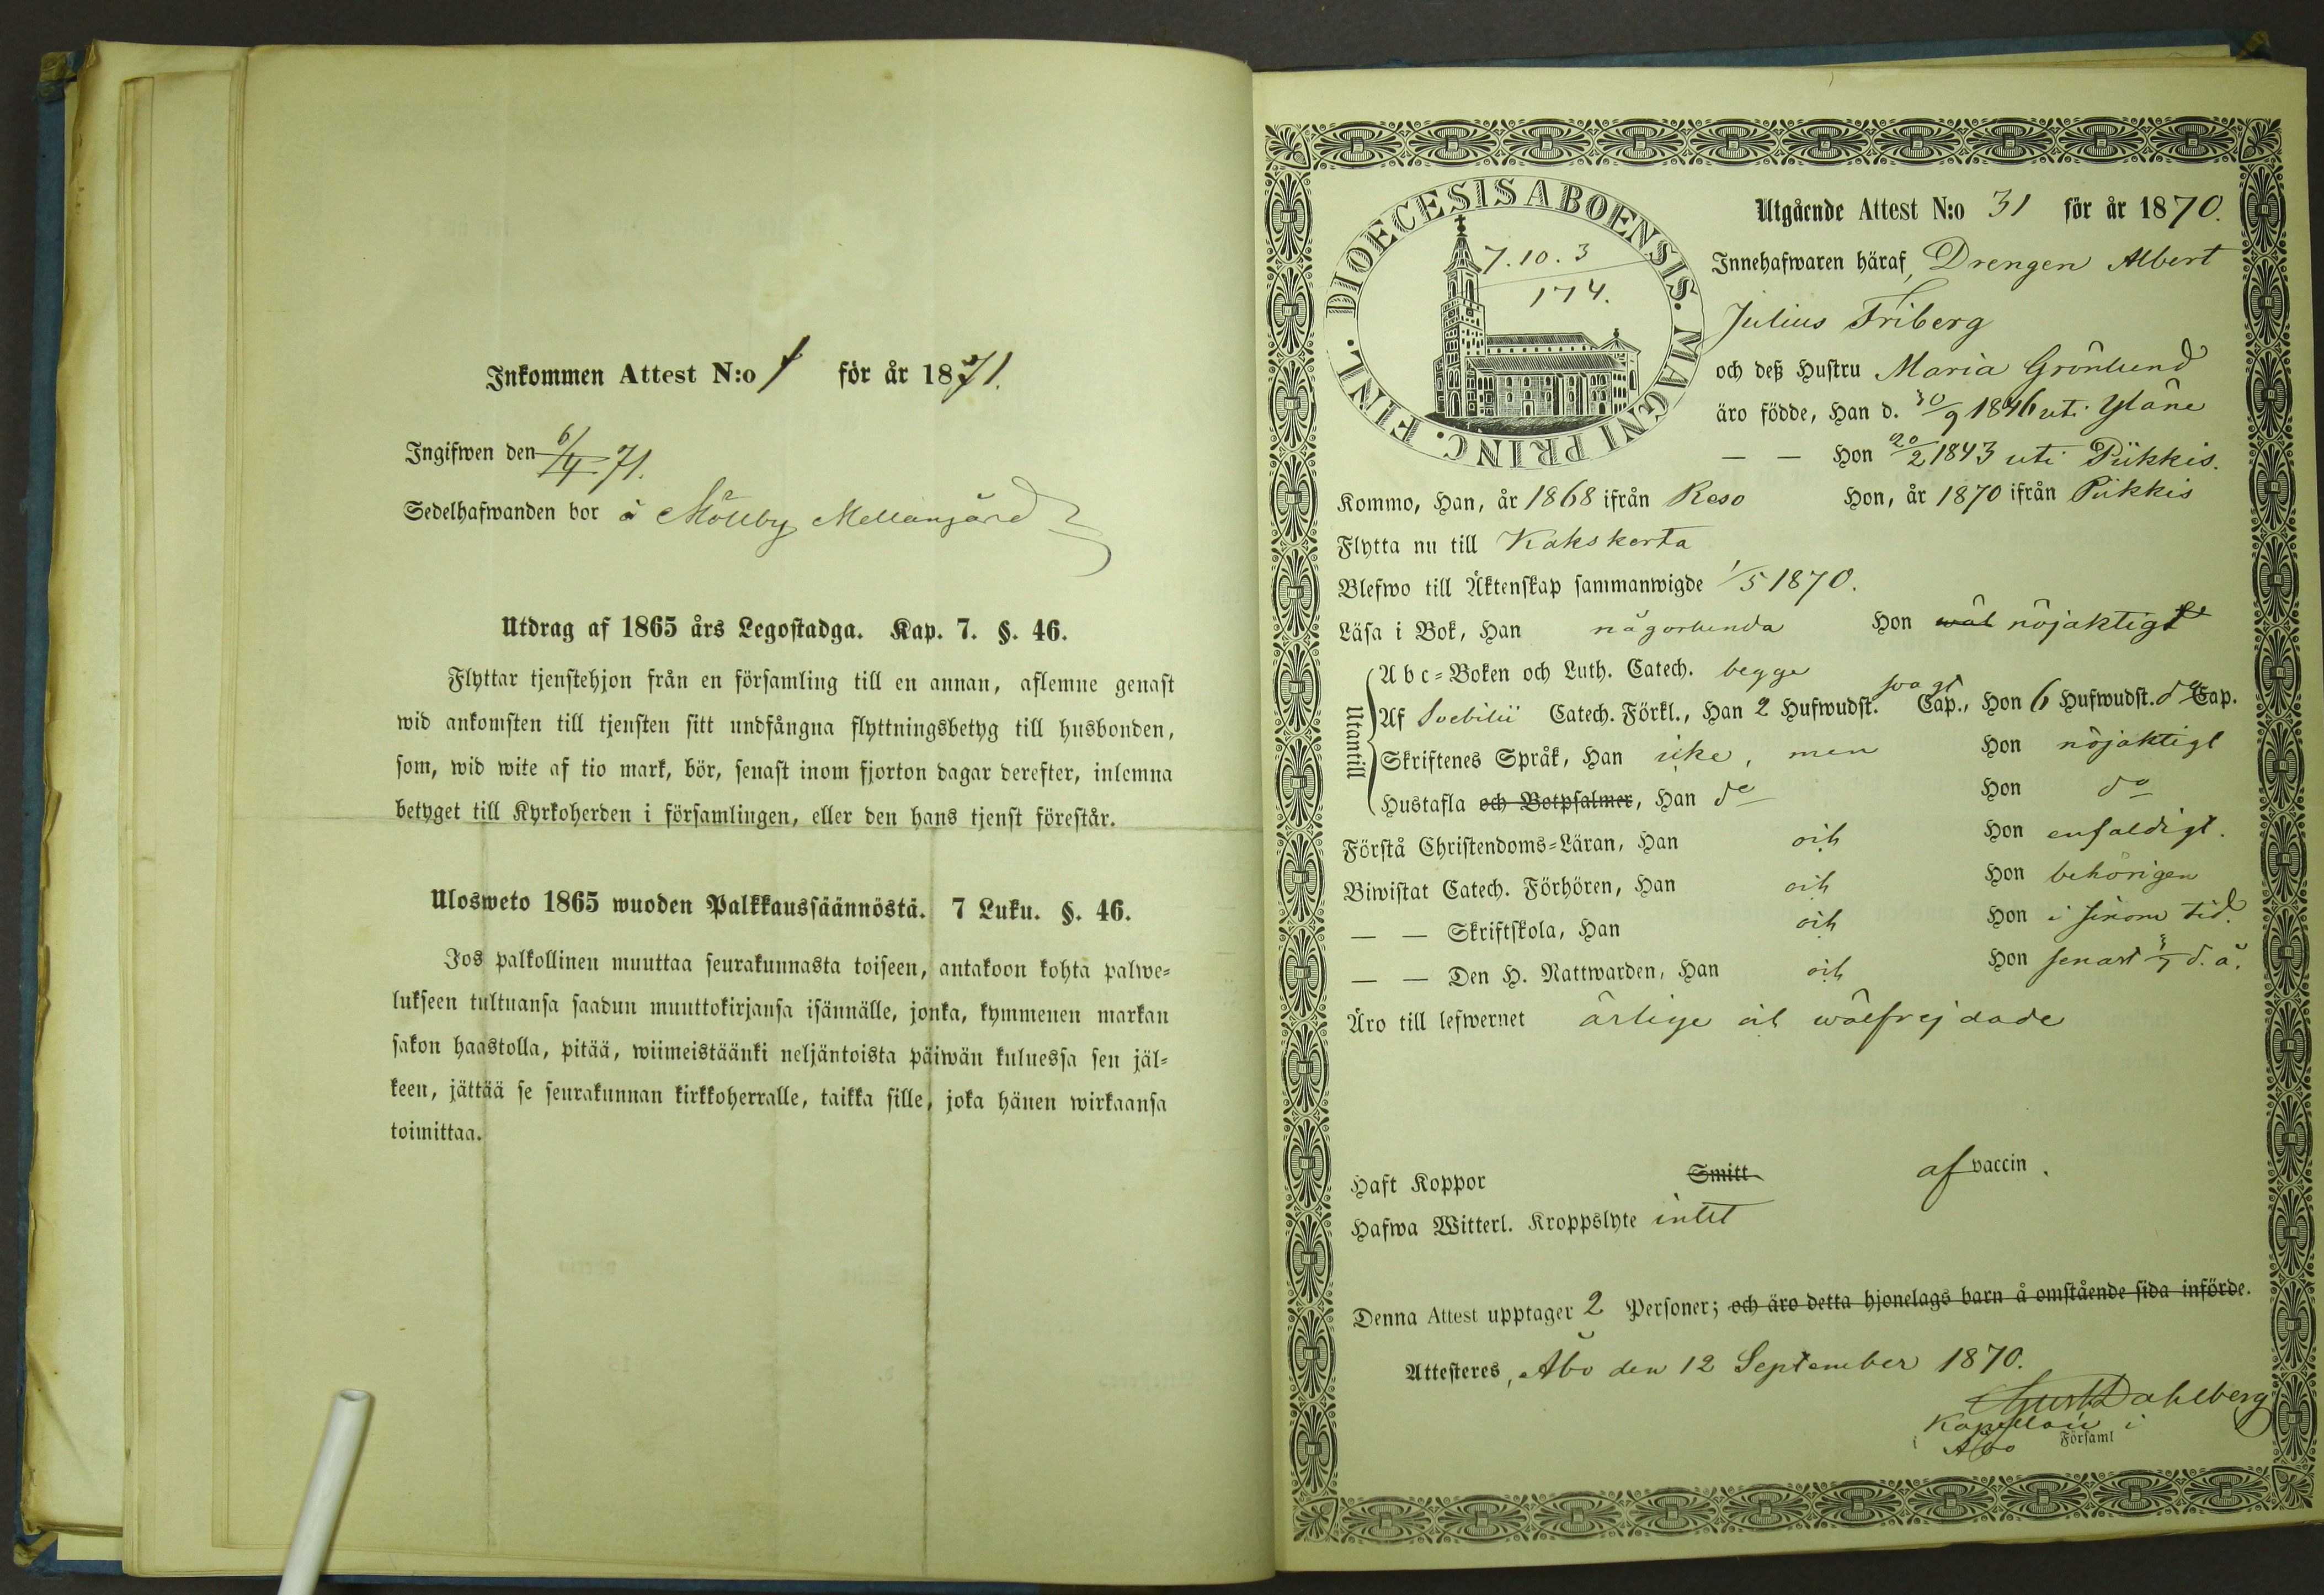 Inkommen Attest N:o 1 för år 1871.
Ingifwen den 6/4 71.
Sedelhafwanden bor å Mölby Mellangård
Utdrag af 1865 års Legostadga. Kap. 7. §. 46.
Flyttar tjenstehjon från en församling till en annan, aflemne genast
wid ankomsten till tjensten sitt undfångna flyttningsbetyg till husbonden,
som, wid wite af tio mark, bör, senast inom fjorton dagar derefter, inlemna
betyget till Kyrkoherden i församlingen, eller den hans tjenst förestår.
Ulosweto 1865 wuoden Palkkaussäännöstä. 7 Luku. §. 46.
Jos palkollinen muuttaa seurakunnasta toiseen, antakoon kohta palwe-
lukseen tultuansa saadun muuttokirjansa isännälle, jonka, kymmenen markan
sakon haastolla, pitää, wiimeistäänki neljäntoista päiwän kuluessa sen jäl-
keen, jättää se seurakunnan kirkkoherralle, taikka sille, joka hänen wirkaansa
toimittaa.
DIOECESIS ABOENSIS. MAGNI PRINC. FINL.
7.10.3
174.
Utgående Attest N:o 31 för år 1870.
Innehafwaren häraf, Drengen Albert
Julius Friberg
och deß Hustru Maria Grönlund
äro födde, Han d. 30/9 1846 uti Yläne
— — Hon 20/2 1843 uti Piikkis.
Kommo, Han, år 1868 ifrån Reso Hon, år 1870 ifrån Piikkis
Flytta nu till Kakskerta
Blefwo till Äktenskap sammanwigde 1/5 1870.
Läsa i Bok, Han någorlunda Hon wäl nöjaktigt
Utantill
Abc-Boken och Luth. Catech. begge
Af Svebilii Catech. Förkl., Han 2 Hufwudst. svagt Cap., Hon 6 Hufwudst. do Cap.
Skriftenes Språk, Han icke, men Hon nöjaktigt
Hustafla och Botpsalmer, Han do Hon do
Förstå Christendoms-Läran, Han och Hon enfaldigt.
Biwistat Catech. Förhören, Han och Hon behörigen
— — Skriftskola, Han och Hon i sinom tid.
— — Den H. Nattwarden, Han och Hon senast d. å.
Äro till lefwernet ärlige och wälfrejdade
Haft Koppor Smitt af vaccin.
Hafwa Witterl. Kroppslyte intet
Denna Attest upptager 2 Personer; och äro detta hjonelags barn å omstående sida införde.
Attesteres, Åbo den 12 September 1870.
Dahlberg
Kapellan i
i Åbo Församl